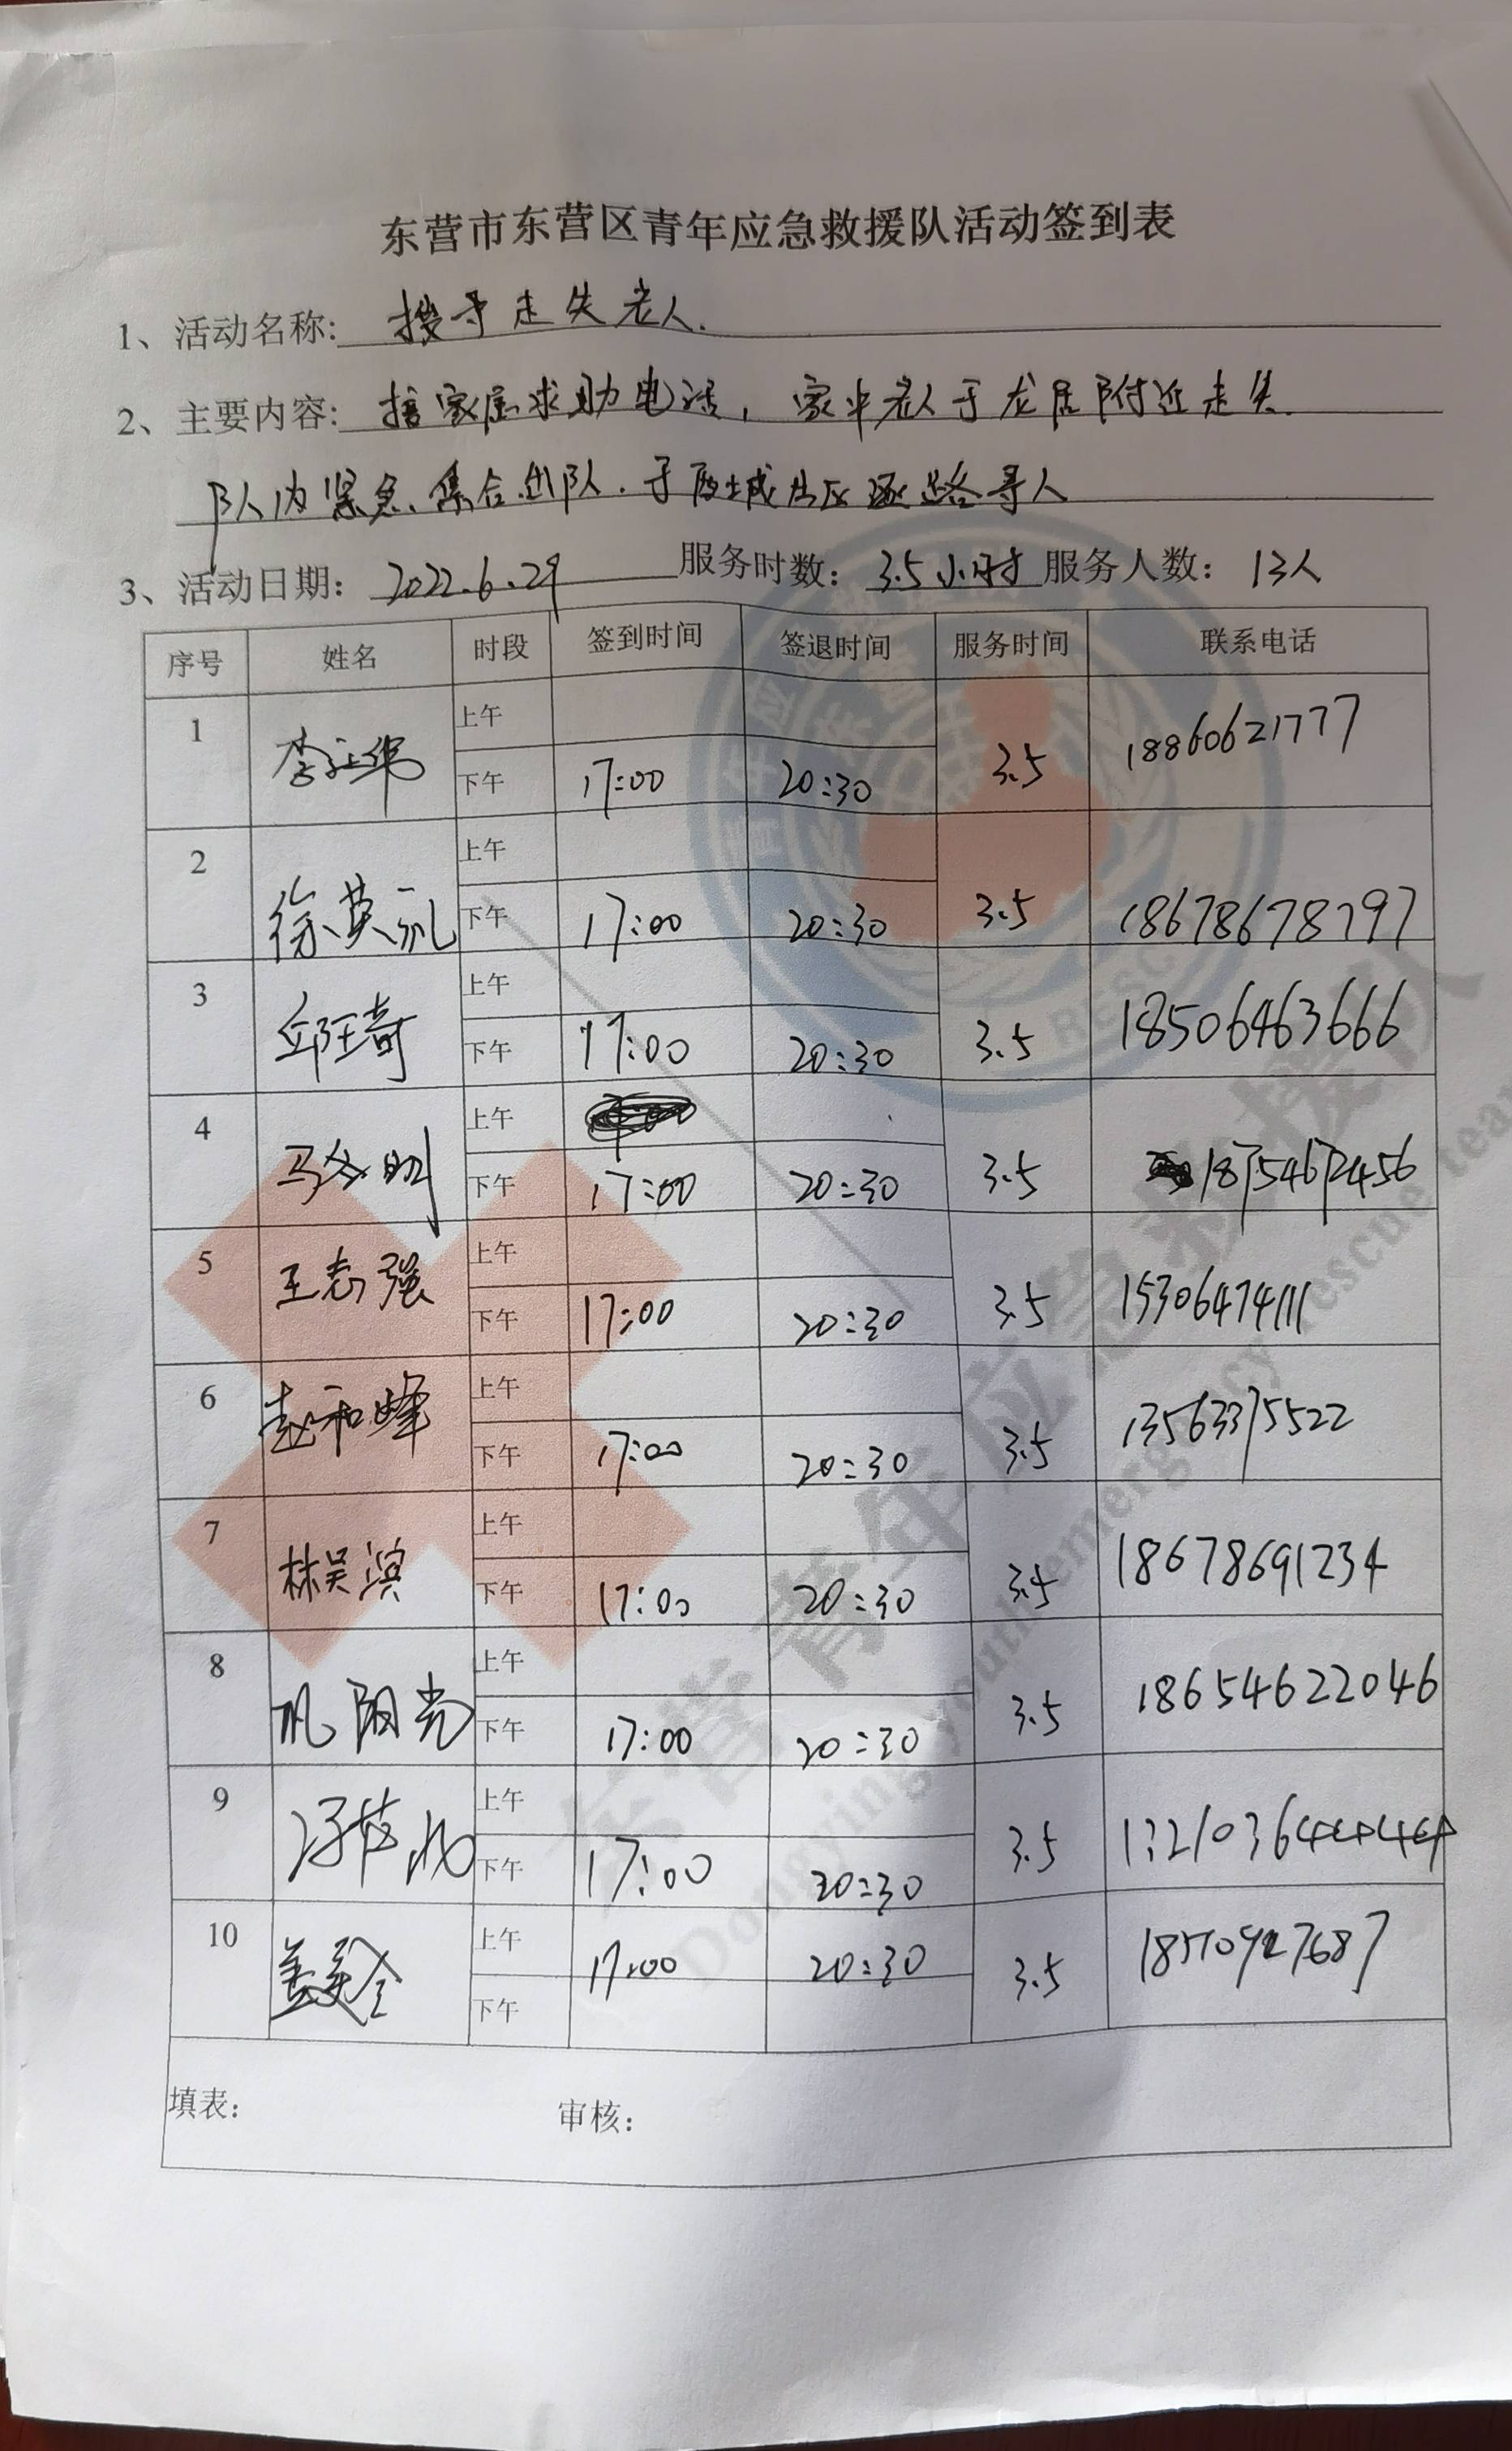 东营市东营区青年应急救援队活动签到表
1、活动名称: 搜寻走失老人.
2、主要内容: 接家属求助电话, 家中老人于龙居附近走失.
队内紧急集合出队. 于西城片区逐路寻人
3、活动日期: 2022.6.29 服务时数: 3.5小时 服务人数: 13人
序号 姓名 时段 签到时间 签退时间 服务时间 联系电话
1 李 上午 3.5 18860621777
下午 17:00 20:30
2 徐英 上午 3.5 18678678797
下午 17:00 20:30
3 邱玉奇 上午 3.5 18506463666
下午 17:00 20:30
4 马 明 上午 3.5 18754672456
下午 17:00 20:30
5 王志强 上午 3.5 15306474111
下午 17:00 20:30
6 赵和峰 上午 3.5 13563375522
下午 17:00 20:30
7 林吴滨 上午 3.5 18678691234
下午 17:00 20:30
8 巩阳光 上午 3.5 18654622046
下午 17:00 20:30
9 上午 3.5 13210364444
下午 17:00 20:30
10 盖 上午 17:00 20:30 3.5
下午
填表: 审核:
东营青年应急救援队
Dongying youth emergency rescue team
RESCUE